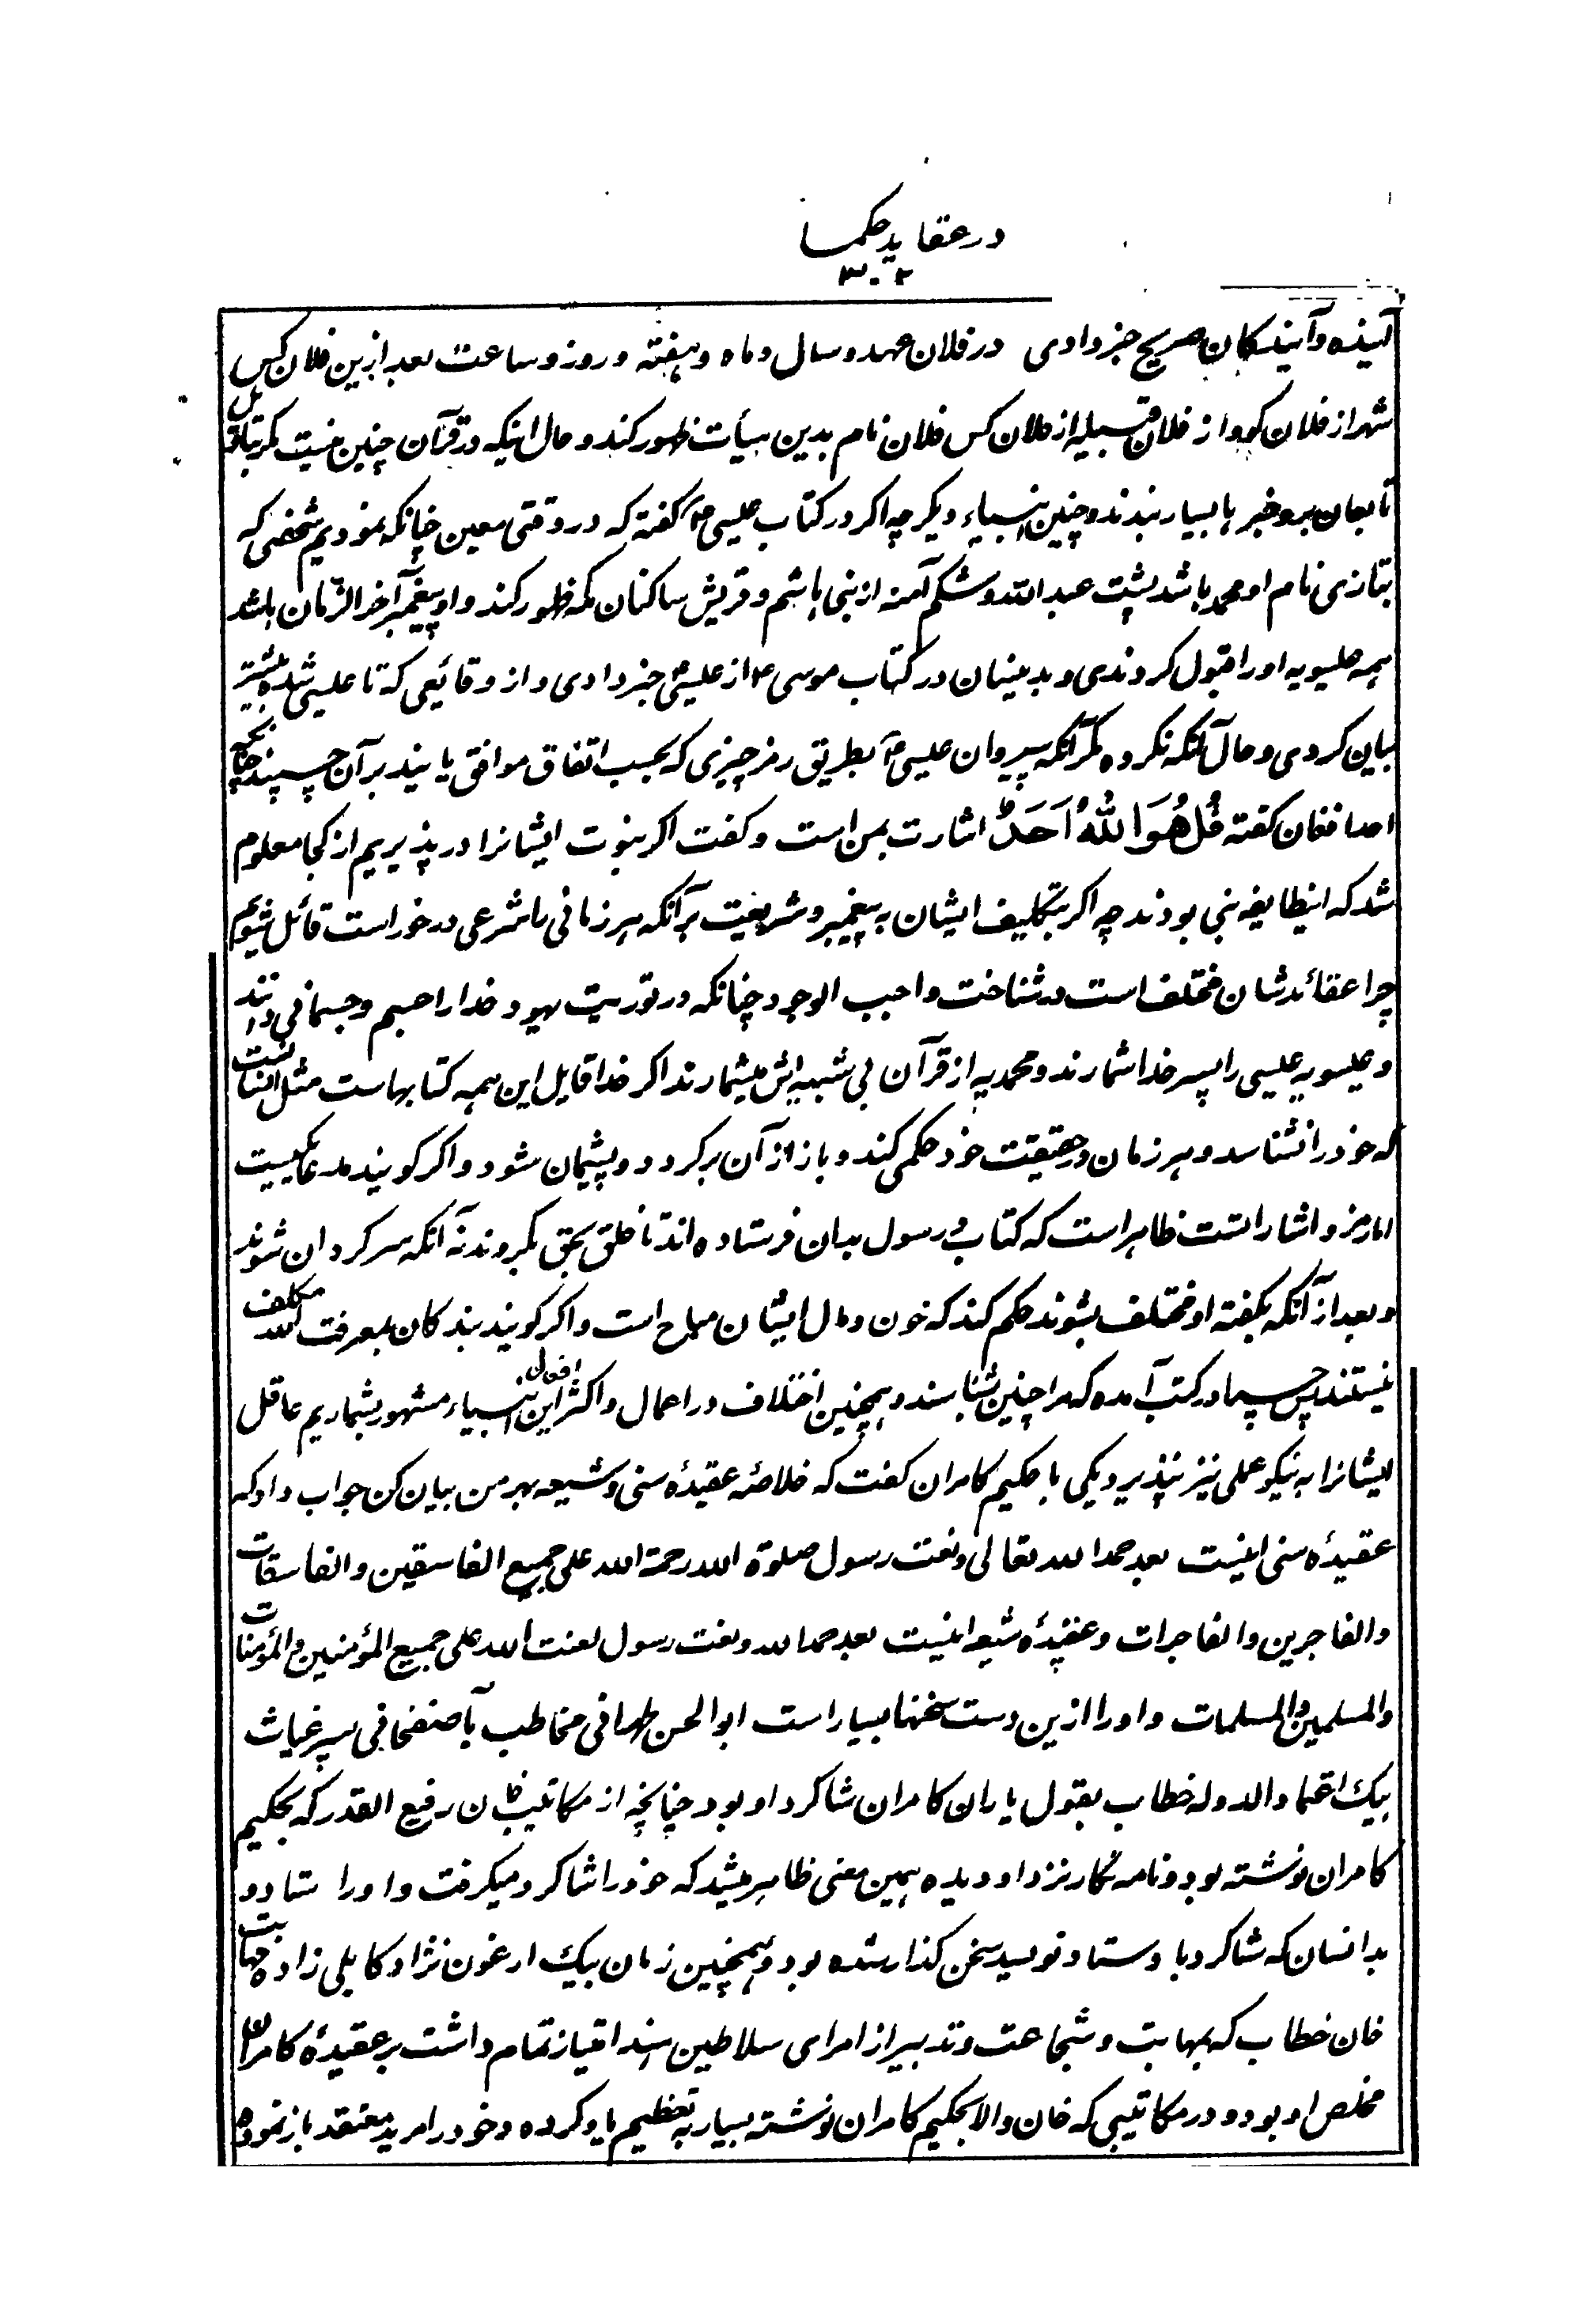 در عقاید حکما
۳۰۲
آینده و آیندکان صریح خبر دادی در فلان عهد و سال و ماه و هفته و روز و ساعت بعد ازین فلان کس
شهر از فلان کو و از فلان قبیله از فلان کس فلان نام بدین هیأت ظهور کند و حال اینکه در قرآن چنین نیست مکر بتاویل
تابعان برو خبر ها بسیار بندند و چنین انبیاء دیکر چه اکر در کتاب عیسی ع گفته که در وقتی معین چنانکه نمودیم شخصی که
بتازی نام او محمد باشد پشت عبد الله و شکم آمنه از بنی هاشم و قریش ساکنان مکه ظهور کند و او پیغمبر آخر الزمان باشد
همه عیسویه او را قبول کردندی و بدینسان در کتاب موسی ع از عیسی ع خبر دادی و از وقائعی که تا عیسی شده بیشتر
بیان کردی و حال آنکه نکرده مکر آنکه پیروان عیسی ع بطریق رمز چیزی که بحسب اتفاق موافق یابند بر آن چسپند چنانچه
احد افغان کفته قُل هُوَ اللهُ اَحَدٌ اشارت بمن است و کفت اکر نبوت ایشانرا در پذیریم از کجا معلوم
شد که اینطایفه نبی بودند چه اکر بتکلیف ایشان به پیغمبر و شریعت برآنکه هر زمانی را شرعی در خور است قائل شویم
چرا عقائد شان مختلف است در شناخت واجب الوجود چنانکه در توریت یهود خدا را جسم و جسمانی دانند
و عیسویه عیسی را پسر خدا شمارند و محمدیه از قرآن بی شبیه اش میشمارند اکر خدا قایل این همه کتابها ست مثل انسانست
که خود را نشناسد و هر زمان در حقیقت خود حکمی کند و باز از آن برکردد و پشیمان شود و اکر کویند مدعا یکیست
اما رمز و اشاراتست ظاهر است که کتاب و رسول بدان فرستاده اند تا خلق بحق بکروند نه آنکه سرکردان شوند
و بعد از آنکه بکفته او مختلف بشوند حکم کند که خون و مال ایشان مباح است و اکر کویند بندکان بمعرفت الله مکلف
نیستند پس چرا در کتب آمده که مرا چنین شناسند و همچنین اختلاف در اعمال و اکثر افعال این انبیاء مشهور بشماریم عاقل
ایشانرا به نیکو عملی نیز نپذیرد یکی با حکیم کامران کفت که خلاصه عقیدهٔ سنی و شیعه بهر من بیان کن جواب داد که
عقیدهٔ سنی اینست بعد حمد الله تعالی و نعت رسول صلوة الله رحمة الله علی جمیع الفاسقین و الفاسقات
والفاجرین والفاجرات و عقیدهٔ شیعه اینست بعد حمد الله و نعت رسول لعنت الله علی جمیع المؤمنین والمؤمنات
والمسلمین والمسلمات و او را ازین دست سخنها بسیار است ابو الحسن طهرانی مخاطب بآصفخانی پسر غیاث
بیک اعتماد الدوله خطاب بقول یاران کامران شاکرد او بود چنانچه از مکاتیب خان رفیع القدر که بحکیم
کامران نوشته بود و نامه نکار نزد او دیده همین معنی ظاهر میشد که خود را شاکرد میکرفت و او را ستاد و
بدانسان که شاکرد با وستاد نویسد سخن کذار شده بود و همچنین زمان بیک ارغون نژاد کابلی زاده مهابت
خان خطاب که بمهابت و شجاعت و تدبیر از امرای سلاطین هند امتیاز تمام داشت بر عقیدهٔ کامران
مخلص او بود و در مکاتیبی که خان والا بحکیم کامران نوشته بسیار به تعظیم یاد کرده و خود را مرید معتقد باز نموده